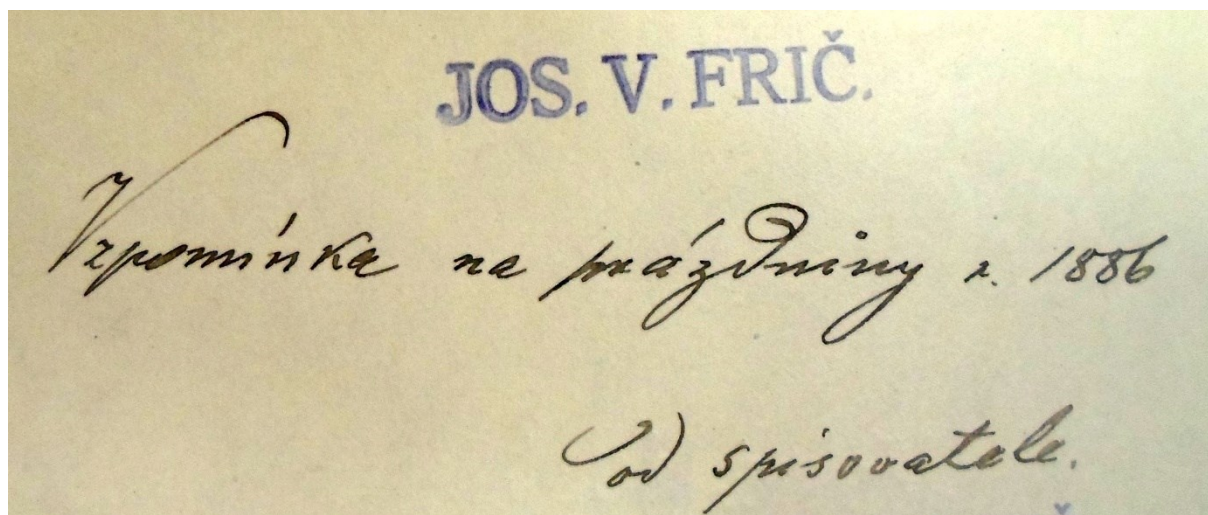 JOS. V. FRIČ.
Vzpomínka na prázdniny r. 1886
Od spisovatele.